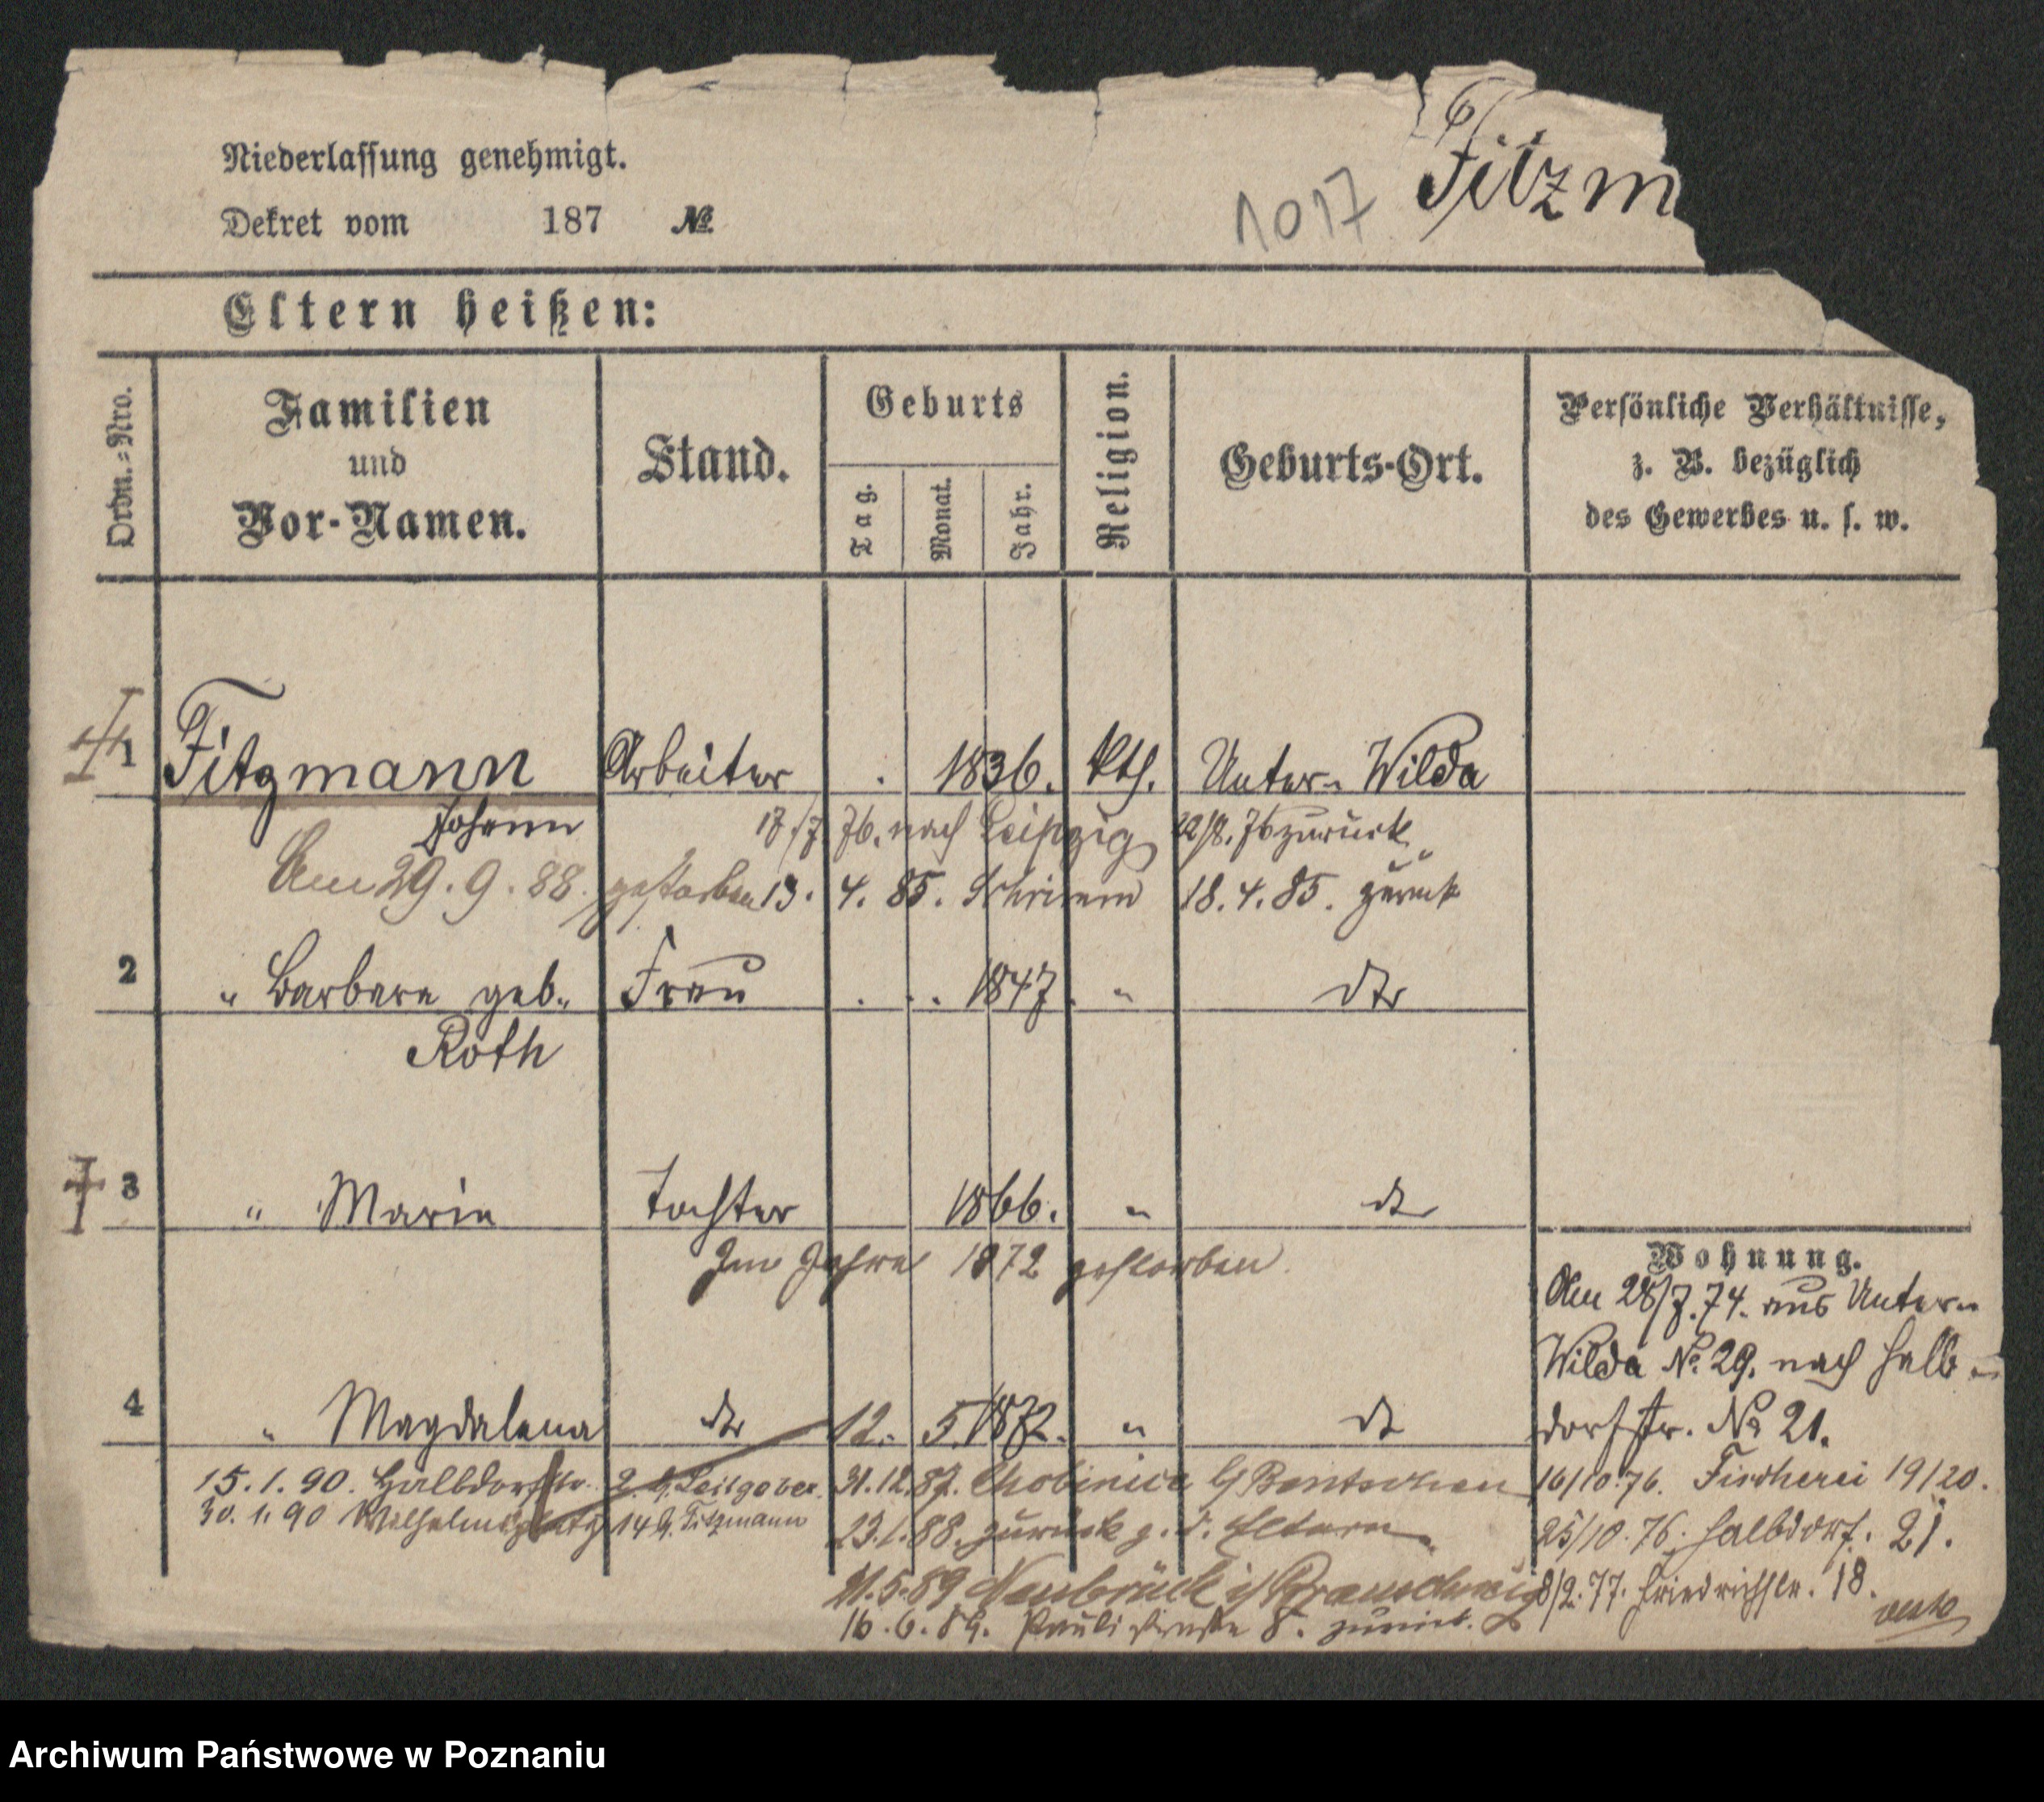 Niederlassung genehmigt.
Dekret vom 187 №
1017 Fitzm
Eltern heißen:
Ordn.-Nro.
Familien und Vor-Namen.
Stand.
Geburts
Tag. Monat. Jahr.
Religion.
Geburts-Ort.
Persönliche Verhältnisse,
z. B. bezüglich
des Gewerbes u. s. w.
1 Fitzmann Arbeiter 1836. kth. Unter-Wilda
Johann 17./7. 76. nach Leipzig 22/8. 76 zurück
Am 29. 9. 88. gestorben 13. 4. 85. Schrimm 18. 4. 85. zurück
2 " Barbara geb. Frau 1847. " dto
Roth
3 " Maria Tochter 1866. " dto
Im Jahre 1872 gestorben.
4 " Magdalena dto 12. 5. 1872. " dto
15. 1. 90. Halbdorfstr. 2. b. Leitgeber. 31.12.87. Chobinice b/ Bentschen
30. 1. 90 Wilhelmsplatz 14 b. Fitzmann 23.1.88. zurück z. d. Eltern
31.5.89 Neubrück i/ Braunschweig
16. 6. 89. Paulistraße 8. zurück.
Wohnung.
Am 28/7. 74. aus Unter-
Wilda No. 29. nach Halb-
dorfstr. No 21.
16/10. 76. Fischerei 19/20.
25/10. 76. Halbdorf. 21.
8/2. 77. Friedrichstr. 18.
Archiwum Państwowe w Poznaniu